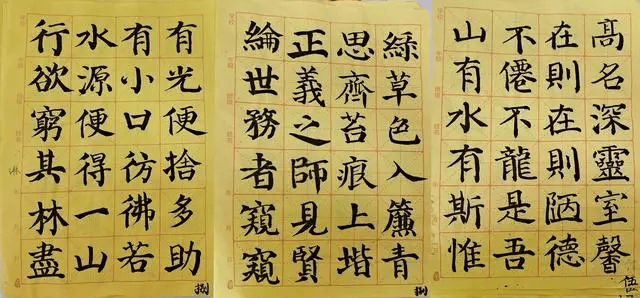 行欲窮其林盡
水源便得一山
有小口彷彿若
有光便捨多助
捌
綸世務者窺窺
正義之師見賢
思齊苔痕上堦
綠草色入簾青
捌
山不在高
有僊則名
水不在深
有龍則靈
斯是陋室
惟吾德馨
伍